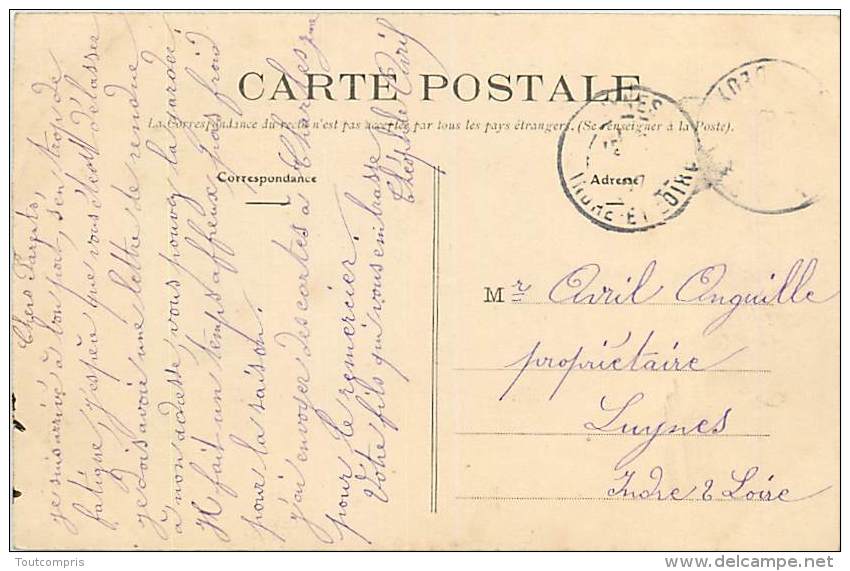 CARTE POSTALE
La Correspondance du recto n'est pas acceptée par tous les pays étrangers. (Se renseigner à la Poste).
Correspondance
Adresse
INDRE-ET-LOIRE
Chers Parents,
je suis arrivé à bon port, sen trop de
fatigue, j'espèu que vous êtes délasser
je dois avoir une lettre de rendue
à mon adresse vous pouvez la garder.
Il fait un temps affreux, pas froid
pour la saison.
j'ai envoyer des cartes à Charles
pour le remercier.
Votre fils qui vous embrasse
Avril
Mr Avril Anguille
propriétaire
Luynes
Indre & Loire
Toutcompris
delcampe.net